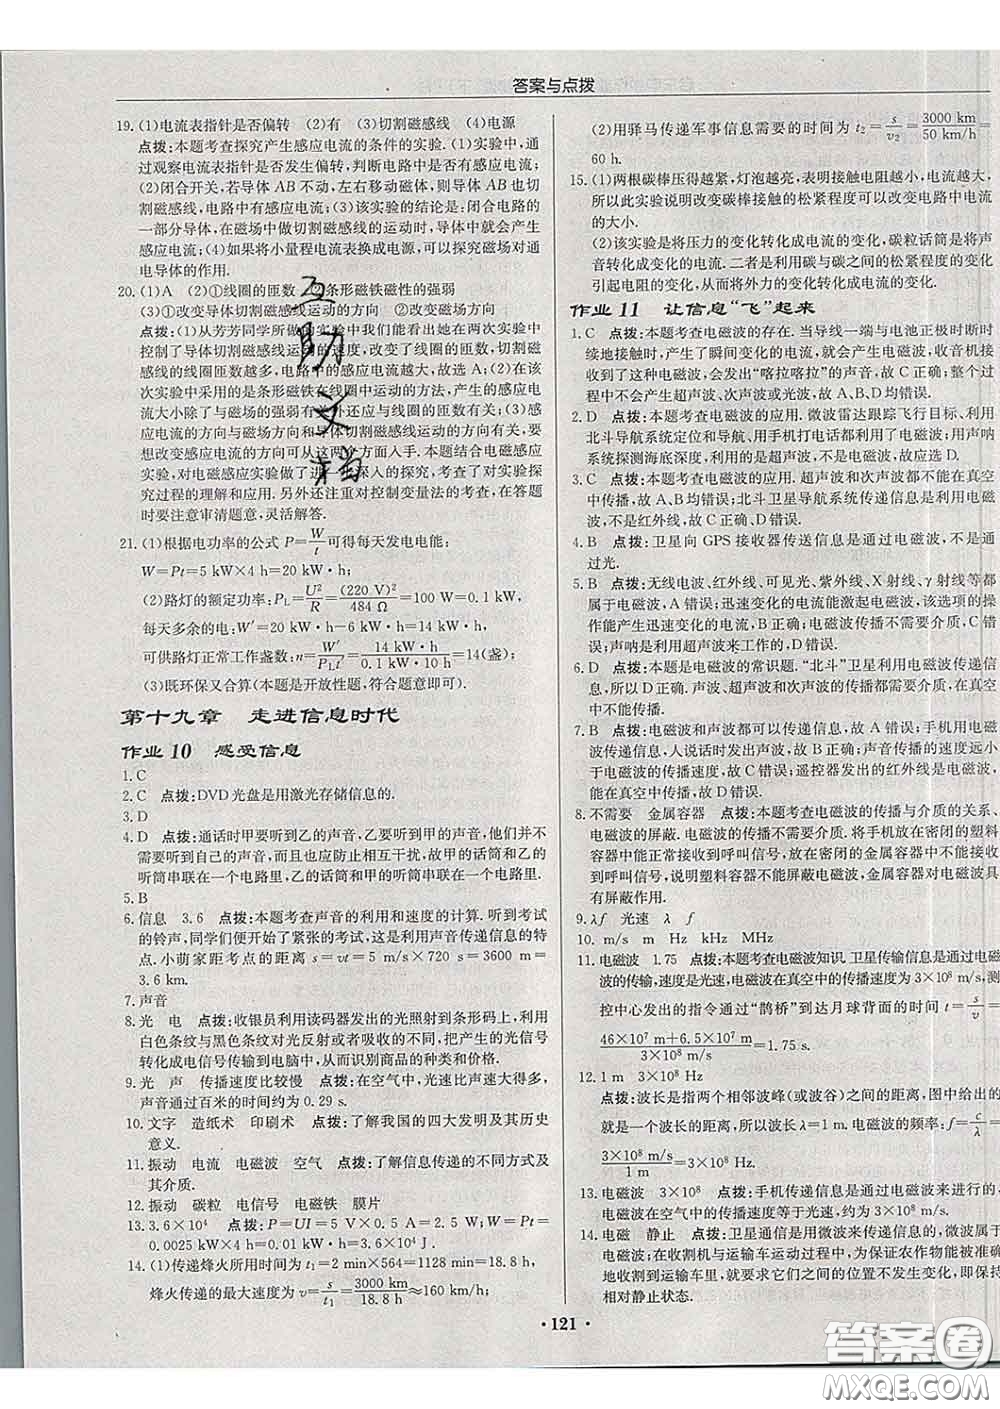 答案与点拨
19. (1)电流表指针是否偏转 (2)有 (3)切割磁感线 (4)电源
点拨:本题考查探究产生感应电流的条件的实验. (1)实验中,通
过观察电流表指针是否发生偏转,判断电路中是否有感应电流;
(2)闭合开关,若导体 AB 不动,左右移动磁体,则导体 AB 也切
割磁感线,电路中有感应电流;(3)该实验的结论是:闭合电路的
一部分导体,在磁场中做切割磁感线的运动时,导体中就会产生
感应电流;(4)如果将小量程电流表换成电源,可以探究磁场对通
电导体的作用.
20. (1)A (2)①线圈的匝数 ②条形磁铁磁性的强弱
(3)①改变导体切割磁感线运动的方向 ②改变磁场方向
点拨:(1)从芳芳同学所做的实验中我们能看出她在两次实验中
控制了导体切割磁感线运动的速度,改变了线圈的匝数,切割磁
感线的线圈匝数越多,电路中的感应电流越大,故选 A;(2)在该
次实验中采用的是条形磁铁在线圈中运动的方法,产生的感应电
流大小除了与磁场的强弱有关外还应与线圈的匝数有关;(3)感
应电流的方向与磁场方向和导体切割磁感线运动的方向有关,要
想改变感应电流的方向可以从这两个方面入手. 本题结合电磁感应
实验,对电磁感应实验做了进一步深入的探究,考查了对实验探
究过程的理解和应用. 另外还注重对控制变量法的考查,在答题
时要注意审清题意,灵活解答.
21. (1)根据电功率的公式 P=W/t 可得每天发电电能:
W=Pt=5 kW×4 h=20 kW·h;
(2)路灯的额定功率:P_L=U²/R=(220 V)²/484 Ω=100 W=0.1 kW,
每天多余的电:W′=20 kW·h-6 kW·h=14 kW·h,
可供路灯正常工作盏数:n=W′/P_Lt′=14 kW·h/0.1 kW·10 h=14(盏);
(3)既环保又合算(本题是开放性题,符合题意即可).
第十九章 走进信息时代
作业 10 感受信息
1. C
2. C 点拨:DVD 光盘是用激光存储信息的.
3. D
4. D 点拨:通话时甲要听到乙的声音,乙要听到甲的声音,他们并不
需要听到自己的声音,而且也应防止相互干扰,故甲的话筒和乙的
听筒串联在一个电路里,乙的话筒和甲的听筒串联在一个电路里.
5. B
6. 信息 3.6 点拨:本题考查声音的利用和速度的计算. 听到考试
的铃声,同学们便开始了紧张的考试,这是利用声音传递信息的特
点. 小萌家距考点的距离 s=vt=5 m/s×720 s=3600 m=
3.6 km.
7. 声音
8. 光 电 点拨:收银员利用读码器发出的光照射到条形码上,利用
白色条纹与黑色条纹对光反射或者吸收的不同,把产生的光信号
转化成电信号传输到电脑中,从而识别商品的种类和价格.
9. 光 声 传播速度比较慢 点拨:在空气中,光速比声速大得多.
声音通过百米的时间约为 0.29 s.
10. 文字 造纸术 印刷术 点拨:了解我国的四大发明及其历史
意义.
11. 振动 电流 电磁波 空气 点拨:了解信息传递的不同方式及
其介质.
12. 振动 碳粒 电信号 电磁铁 膜片
13. 3.6×10⁴ 点拨:P=UI=5 V×0.5 A=2.5 W;W=Pt=
0.0025 kW×0.01 h=3.6×10⁴ J.
14. (1)传递烽火所用时间为 t₁=2 min×564=1128 min=18.8 h,
烽火传递的最大速度为 v=s/t₁=3000 km/18.8 h≈160 km/h;
(2)用驿马传递军事信息需要的时间为 t₂=s/v₂=3000 km/50 km/h=
60 h.
15. (1)两根碳棒压得越紧,灯泡越亮,表明接触电阻越小,电流越大,
所以此实验说明改变碳棒接触的松紧程度可以改变电路中电流
的大小.
(2)该实验是将压力的变化转化成电流的变化,碳粒话筒是将声
音转化成变化的电流. 二者是利用碳与碳之间的松紧程度的变化
引起电阻的变化,从而将外力的变化转化成电流的变化.
作业 11 让信息“飞”起来
1. C 点拨:本题考查电磁波的存在. 当导线一端与电池正极时断时
续地接触时,产生了瞬间变化的电流,就产生了电磁波,收音机接
收到了这种电磁波,会发出“喀拉喀拉”的声音,故 C 正确;整个过
程不会产生超声波、次声波或光波,故 A、B、D 均错误.
2. D 点拨:本题考查电磁波的应用. 微波雷达跟踪飞行目标、利用
北斗导航系统定位和导航、用手机打电话都利用了电磁波;用声呐
系统探测海底深度,利用的是声波,不是电磁波,故应选 D.
3. C 点拨:本题考查电磁波的应用. 超声波和次声波都不能在真空
中传播,故 A、B均错误;北斗卫星导航系统传递信息是利用电磁
波,不是红外线,故 C 正确、D 错误.
4. B 点拨:卫星向 GPS 接收器传送信息是通过电磁波,不是通
过光.
5. B 点拨:无线电波、红外线、可见光、紫外线、X 射线、γ 射线等都
属于电磁波,A 错误;迅速变化的电流能激起电磁波,该选项的操
作能产生迅速变化的电流,B 正确;电磁波的传播不需要介质,C
错误;声呐是利用超声波来工作的,D 错误.
6. D 点拨:本题是电磁波的常识题. “北斗”卫星利用电磁波传递信
息,所以 D 正确. 声波、超声波和次声波的传播需要介质,在真空
中不能传播.
7. B 点拨:电磁波和声波都可以传递信息,故 A 错误;手机用电磁
波传递信息,人说话时声带振动发出声波,故 B 正确;声速远小于
电磁波的传播速度,故 C 错误;遥控器发出的红外线是电磁波,
能在真空中传播,故 D 错误.
8. 不需要 金属容器 点拨:本题考查电磁波的传播与介质的关系、
电磁波的屏蔽. 电磁波的传播不需要介质. 将手机放在密闭的塑料
容器中能正常接收到呼叫信号,而放在密闭的金属容器中却接收
不到呼叫信号,说明塑料容器不能屏蔽电磁波,金属容器对电磁波
有屏蔽作用.
9. λf 光速 λ f
10. m/s m Hz kHz MHz
11. 电磁波 1.75 点拨:本题考查电磁波知识. 卫星传输信息是通过电磁
波的传输,速度是光速,电磁波在真空中的传播速度为 3×10⁸ m/s,测
控中心发出的指令通过“鹊桥”到达月球背面的时间 t=s/v=
46×10⁷ m+6.5×10⁷ m/3×10⁸ m/s=1.75 s.
12. 1 m 3×10⁸ Hz
点拨:波长是指两个相邻波峰(或波谷)之间的距离,图中给出的
就是一个波长的距离,所以波长 λ=1 m. 电磁波的频率:f=c/λ=
3×10⁸ m/s/1 m=3×10⁸ Hz.
13. 电磁波 3×10⁸ 点拨:手机传递信息是通过电磁波来进行的,电
磁波在空气中的传播速度等于光速,约为 3×10⁸ m/s.
14. 电磁 静止 点拨:卫星通信是用微波来传递信息的,微波属于
电磁波;在收割机与运输车运动过程中,为保证农作物能被准确
地收割到运输车里,就要使它们之间的位置不发生变化,即保持
相对静止状态.
· 121 ·
互助文档
答案圈
MXQE.COM